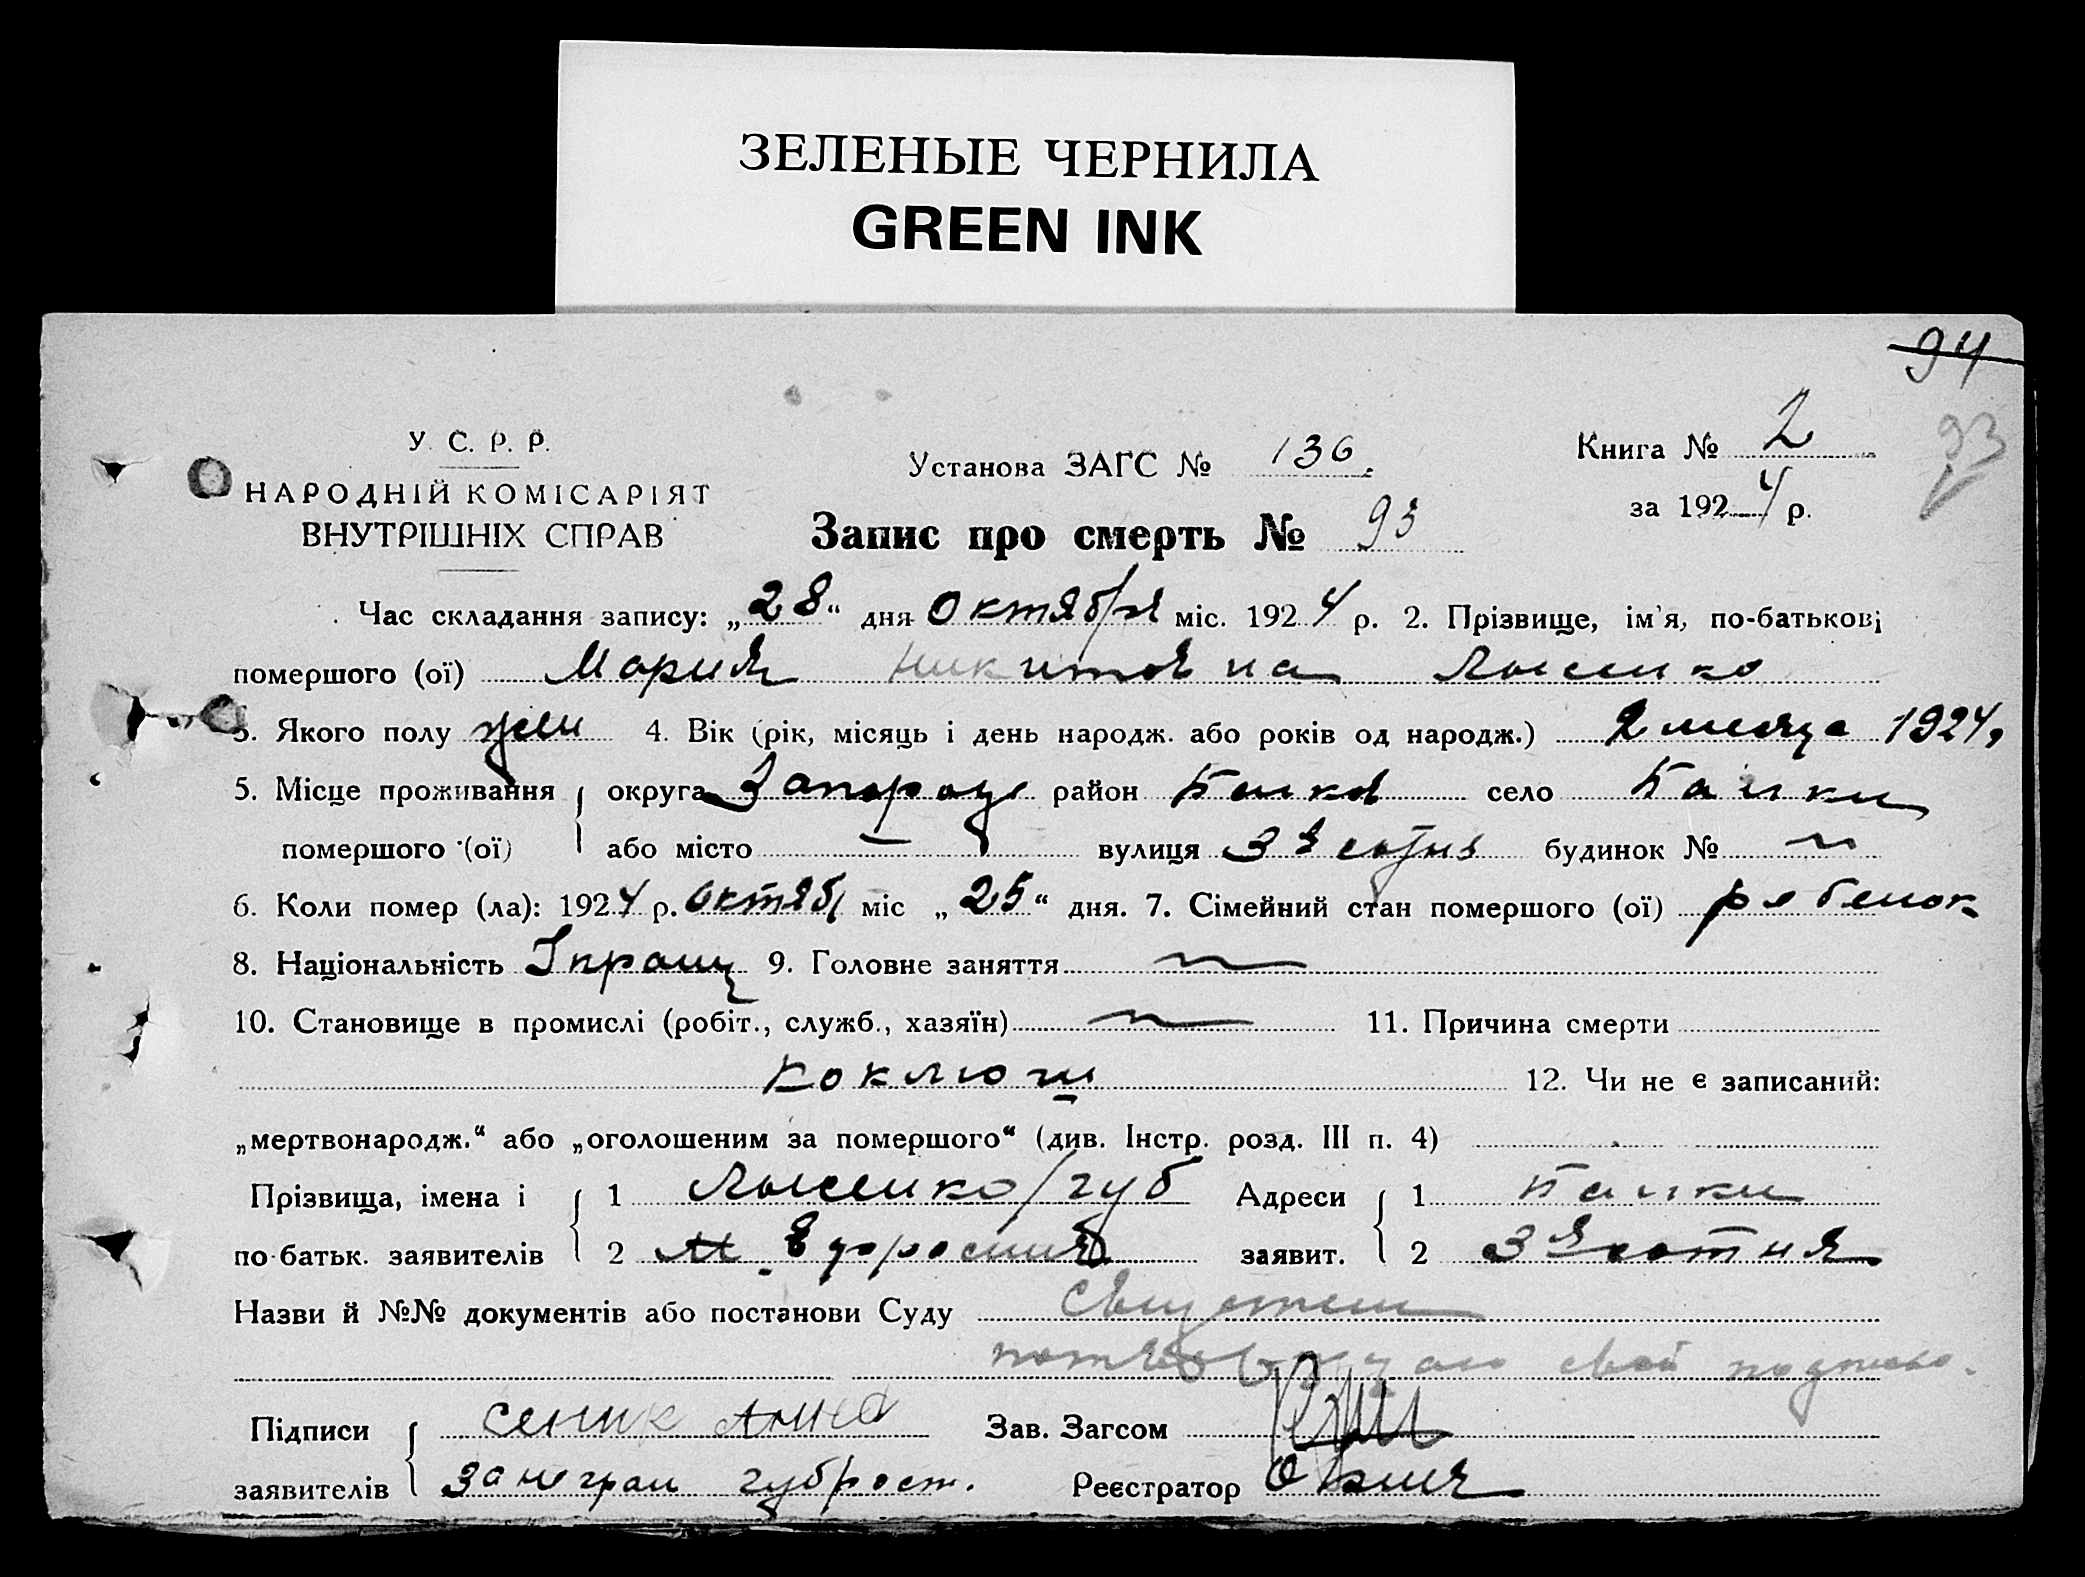 ЗЕЛЕНЫЕ ЧЕРНИЛА
GREEN INK
94
93
У. С. Р. Р.
НАРОДНІЙ КОМІСАРІЯТ
ВНУТРІШНІХ СПРАВ
Установа ЗАГС № 136.
Книга № 2
за 1924 р.
Запис про смерть № 93
Час складання запису: „28“ дня Октября міс. 1924 р. 2. Прізвище, ім'я, по-батькові
помершого (ої) Мария Никитовна Лысенко
3. Якого полу жен 4. Вік (рік, місяць і день народж. або років од народж.) 2 месяца 1924,
5. Місце проживання округа Запорож район Балков село Балки
помершого (ої) або місто — вулиця 3я сотня будинок № ~
6. Коли помер (ла): 1924 р. Октяб міс „25“ дня. 7. Сімейний стан помершого (ої) ребенок
8. Національність Украин 9. Головне заняття ~
10. Становище в промислі (робіт., служб., хазяїн) ~ 11. Причина смерти
Коклюш 12. Чи не є записаний:
„мертвонародж.“ або „оголошеним за помершого“ (див. Інстр. розд. III п. 4)
Прізвища, імена і 1 Лысенко Адреси 1 Балки
по-батьк. заявителів 2 заявит. 2 3я сотня
Назви й №№ документів або постанови Суду
свой
Підписи Сеник Анна Зав. Загсом
заявителів За неграм Реєстратор